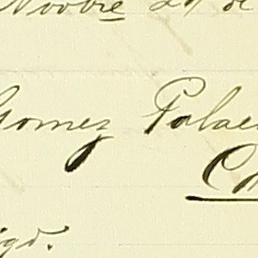 Novbre 29 de
Gomez Palac
C
igd.